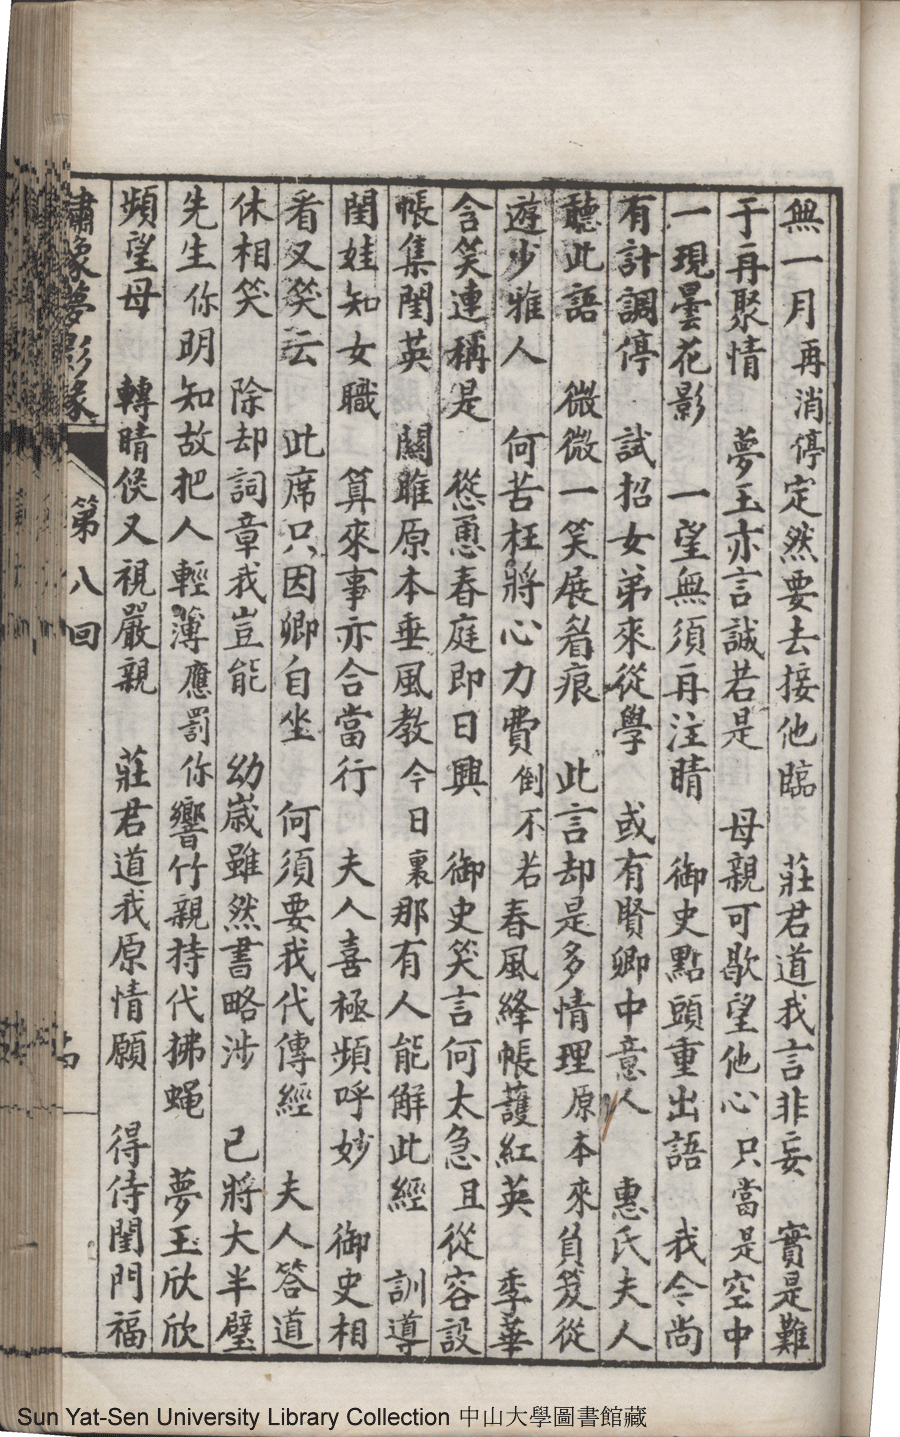 無一月再消停定然要去接他臨　莊君道我言非妄　實是難
于再聚情　夢玉亦言誠若是　母親可歇望他心　只當是空中
一現曇花影　一望無須再注睛　御史點頭重出語　我今尚
有計調停　試招女弟來從學　或有賢卿中意人　惠氏夫人
聽此語　微微一笑展眉痕　此言却是多情理　原本來負笈從
遊少雅人　何苦枉將心力費　倒不若春風絳帳護紅英　季華
含笑連稱是　慫恿春庭即日興　御史笑言何太急　且從容設
帳集閨英　關雎原本垂風教　今日裏那有人能解此經　訓導
閨娃知女職　算來事亦合當行　夫人喜極頻呼妙　御史相
看又笑云　此席只因卿自坐　何須要我代傳經　夫人答道
休相笑　除却詞章我豈能　幼歲雖然書略涉　已將大半璧
先生　你明知故把人輕薄　應罰你響竹親持代拂蝇　夢玉欣欣
頻望母　轉睛俟又視嚴親　莊君道我原情願　得侍閨門福
繡像夢影緣　第八回
Sun Yat-Sen University Library Collection 中山大學圖書館藏